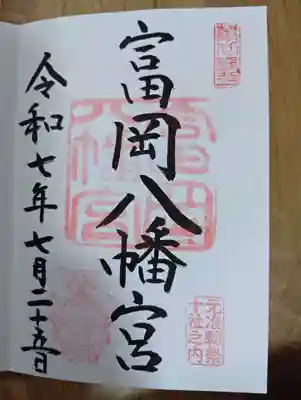 富岡八幡宮
元准勅祭
十社之内
富岡
八幡宮
令和七年七月二十五日